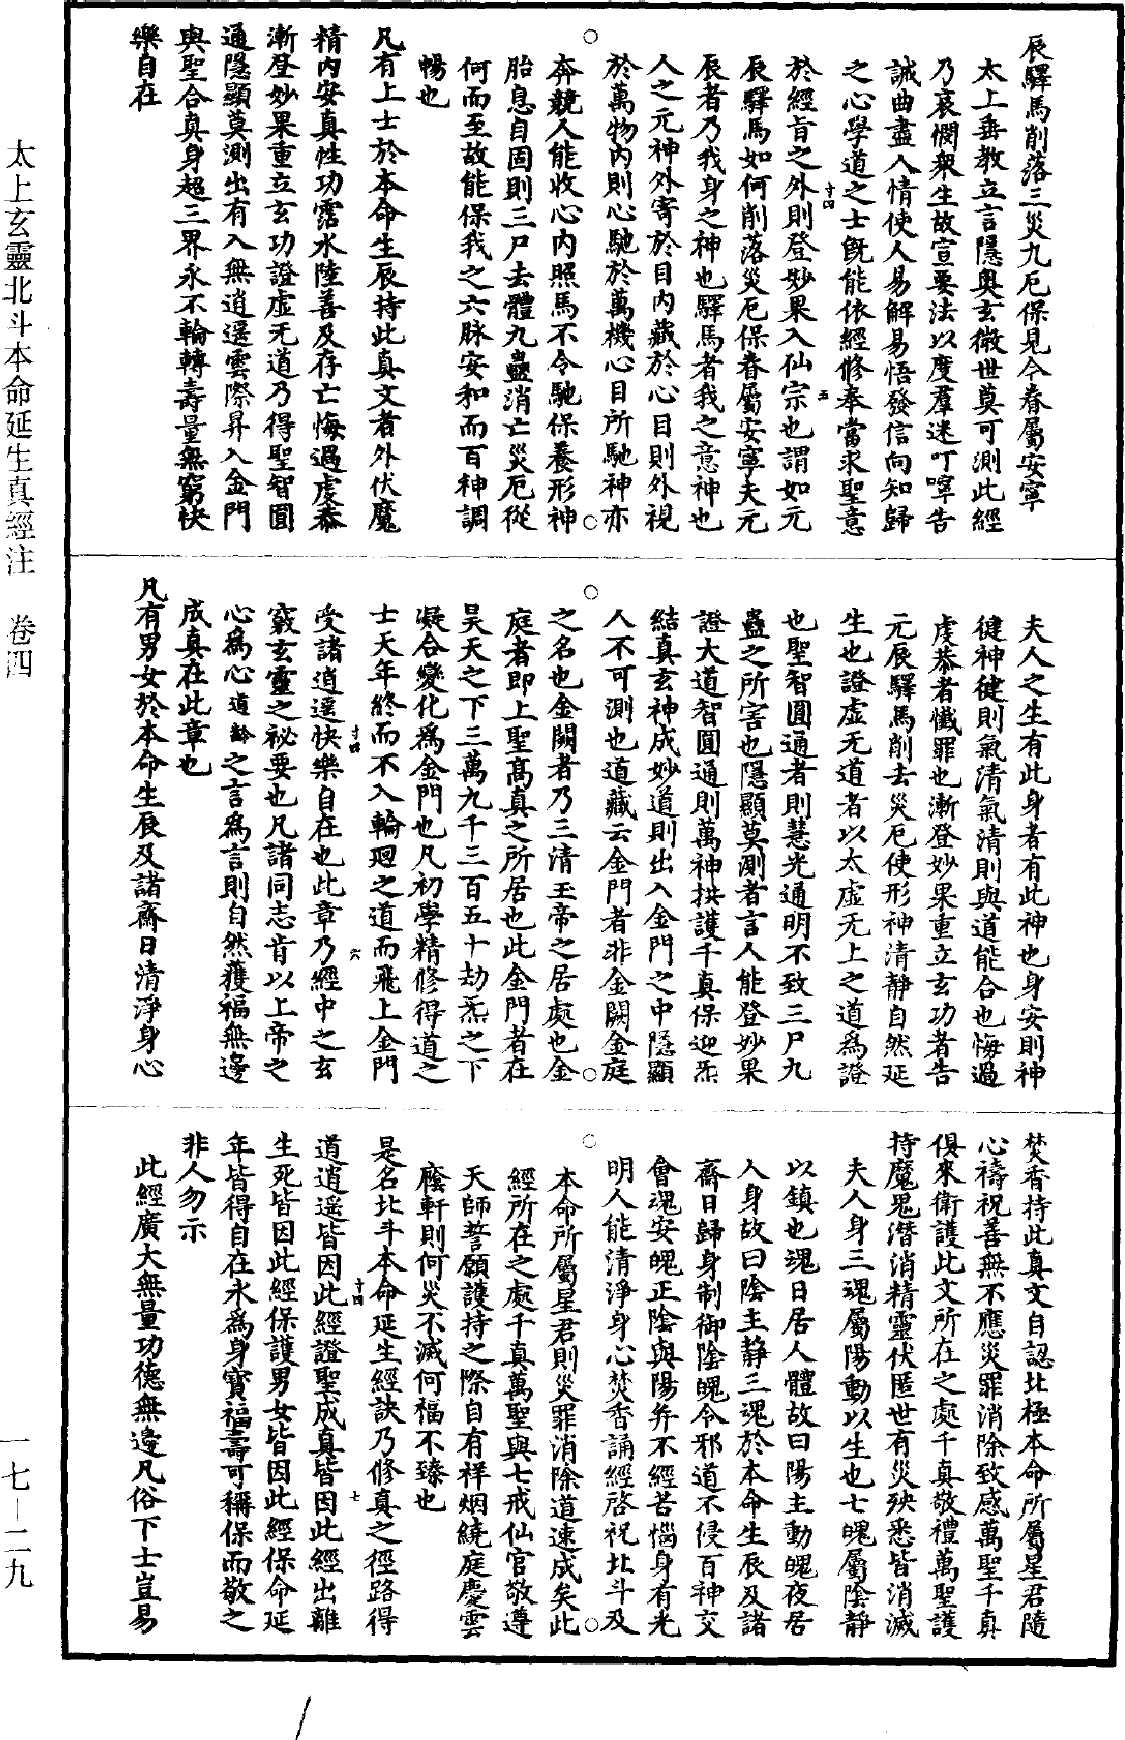 辰驛馬削落三災九厄保見今眷屬安寧
太上垂教立言隱奧玄微世莫可測此經
乃哀憫衆生故宣要法以度羣迷叮嚀告
誡曲盡人情使人易解易悟發信向知歸
之心學道之士旣能依經修奉當求聖意
於經旨之外則登妙果入仙宗也謂如元
十四
五
辰驛馬如何削落災厄保眷屬安寧夫元
辰者乃我身之神也驛馬者我之意神也
人之元神外寄於目内藏於心目則外視
於萬物内則心馳於萬機心目所馳神亦
奔競人能收心内照馬不令馳保養形神
胎息自固則三尸去體九蠱消亡災厄從
何而至故能保我之六脉安和而百神調
暢也
凡有上士於本命生辰持此真文者外伏魔
精内安真性功霑水陸善及存亡悔過虔恭
漸登妙果重立玄功證虛无道乃得聖智圓
通隱顯莫測出有入無逍遥雲際昇入金門
與聖合真身超三界永不輪轉壽量無窮快
樂自在
夫人之生有此身者有此神也身安則神
健神健則氣清氣清則與道能合也悔過
虔恭者懺罪也漸登妙果重立玄功者告
元辰驛馬削去災厄使形神清靜自然延
生也證虛无道者以太虛无上之道為證
也聖智圓通者則慧光通明不致三尸九
蠱之所害也隱顯莫測者言人能登妙果
證大道智圓通則萬神拱護千真保迎炁
結真玄神成妙道則出入金門之中隱顯
人不可測也道藏云金門者非金闕金庭
之名也金闕者乃三清玉帝之居處也金
庭者即上聖髙真之所居也此金門者在
昊天之下三萬九千三百五十劫炁之下
凝合變化為金門也凡初學精修得道之
士天年終而不入輪廻之道而飛上金門
受諸逍遥快樂自在也此章乃經中之玄
十四
六
竅玄靈之祕要也凡諸同志肯以上帝之
心為心道齡之言為言則自然獲福無邊
成真在此章也
凡有男女於本命生辰及諸齋日清淨身心
焚香持此真文自認北極本命所屬星君隨
心禱祝善無不應災罪消除致感萬聖千真
俱來衛護此文所在之處千真敬禮萬聖護
持魔鬼潛消精靈伏匿世有災殃悉皆消滅
夫人身三魂屬陽動以生也七魄屬陰靜
以鎮也魂日居人體故曰陽主動魄夜居
人身故曰陰主靜三魂於本命生辰及諸
齋日歸身制御陰魄令邪道不侵百神交
會魂安魄正陰與陽并不經苦惱身有光
明人能清淨身心焚香誦經啓祝北斗及
本命所屬星君則災罪消除道速成矣此
經所在之處千真萬聖與七戒仙官敬遵
天師誓願護持之際自有祥烟繞庭慶雲
廕軒則何災不滅何福不臻也
是名北斗本命延生經訣乃修真之徑路得
十四
七
道逍遥皆因此經證聖成真皆因此經出離
生死皆因此經保護男女皆因此經保命延
年皆得自在永為身寶福壽可稱保而敬之
非人勿示
此經廣大無量功德無邊凡俗下士豈易
太上玄靈北斗本命延生真經注 卷四
一七—二九